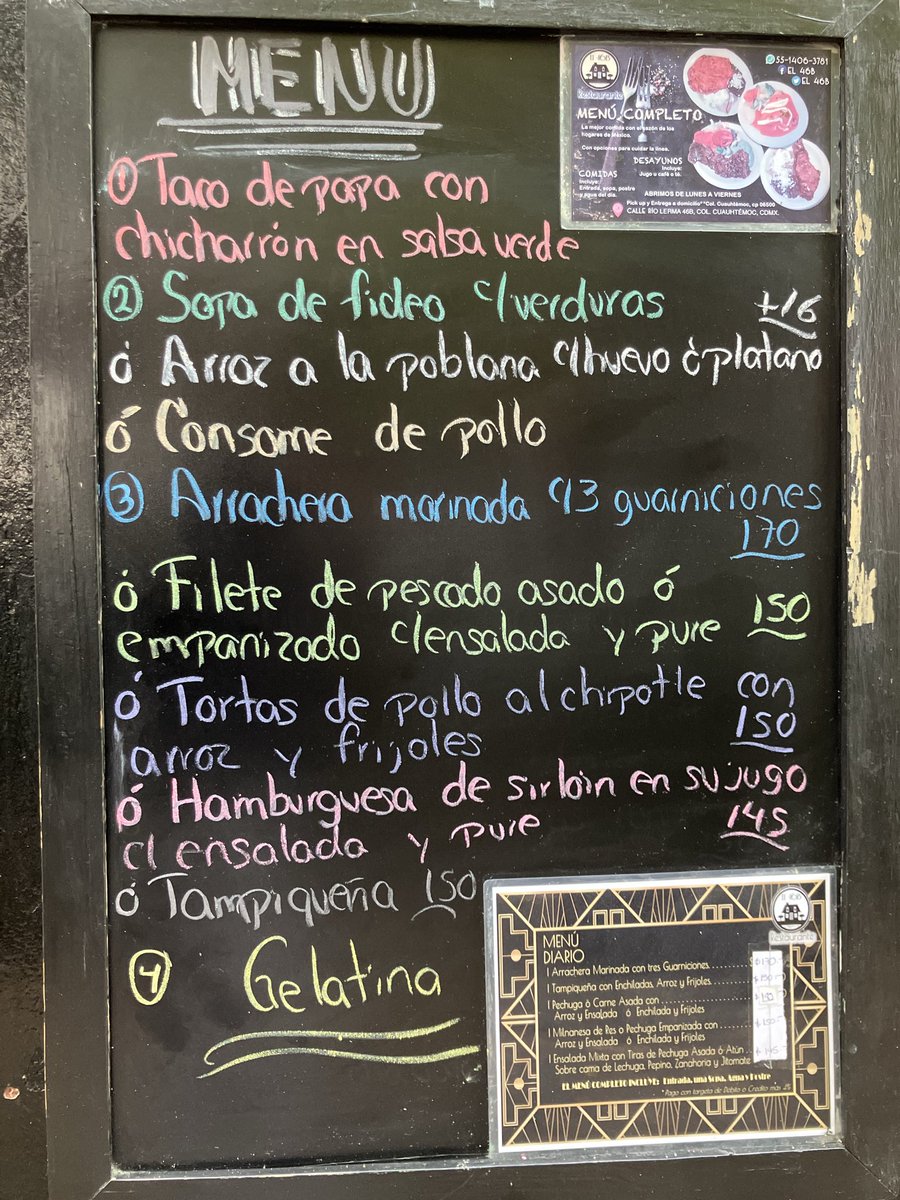 MENU
① Taco de papa con
chicharrón en salsa verde
② Sopa de fideo c/verduras +16
ó Arroz a la poblana c/huevo ó platano
ó Consome de pollo
③ Arrachera marinada c/3 guarniciones
170
ó Filete de pescado asado ó
empanizado c/ensalada y pure 150
ó Tortas de pollo al chipotle con
arroz y frijoles 150
ó Hamburguesa de sirloin en su jugo
c/ensalada y pure 145
ó Tampiqueña 150
④ Gelatina
El 46B
Restaurante
55-1406-3781
EL 46B
EL 46B
MENÚ COMPLETO
La mejor comida con el sazón de los
hogares de México.
Con opciones para cuidar la línea.
DESAYUNOS
Incluye:
Jugo u café o té.
COMIDAS
Incluye:
Entrada, sopa, postre
y agua del día.
ABRIMOS DE LUNES A VIERNES
Pick up y Entrega a domicilio**Col. Cuauhtémoc, cp 06500
CALLE RÍO LERMA 46B, COL. CUAUHTÉMOC, CDMX.
El 46B
Restaurante
MENÚ
DIARIO
1 Arrachera Marinada con tres Guarniciones
1 Tampiqueña con Enchiladas, Arroz y Frijoles
1 Pechuga ó Carne Asada con
Arroz y Ensalada ó Enchilada y Frijoles
1 Milnanesa de Res o Pechuga Empanizada con
Arroz y Ensalada ó Enchilada y Frijoles
1 Ensalada Mixta con Tiras de Pechuga Asada ó Atún
Sobre cama de Lechuga, Pepino, Zanahoria y Jitomate
EL MENÚ COMPLETO INCLUYE: Entrada, una Sopa, Agua y Postre
*Pago con targeta de Debito o Credito mas